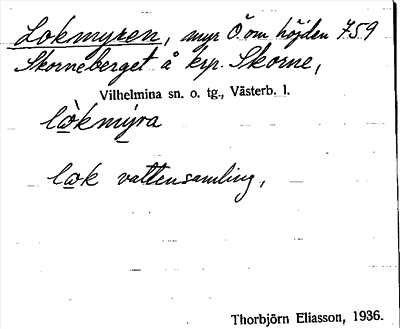 Lokmyren, myr Ö om höjden 759
Skorneberget å krp. Skorne,
Vilhelmina sn. o. tg., Västerb. l.
lòkmýra
lok vattensamling,
Thorbjörn Eliasson, 1936.